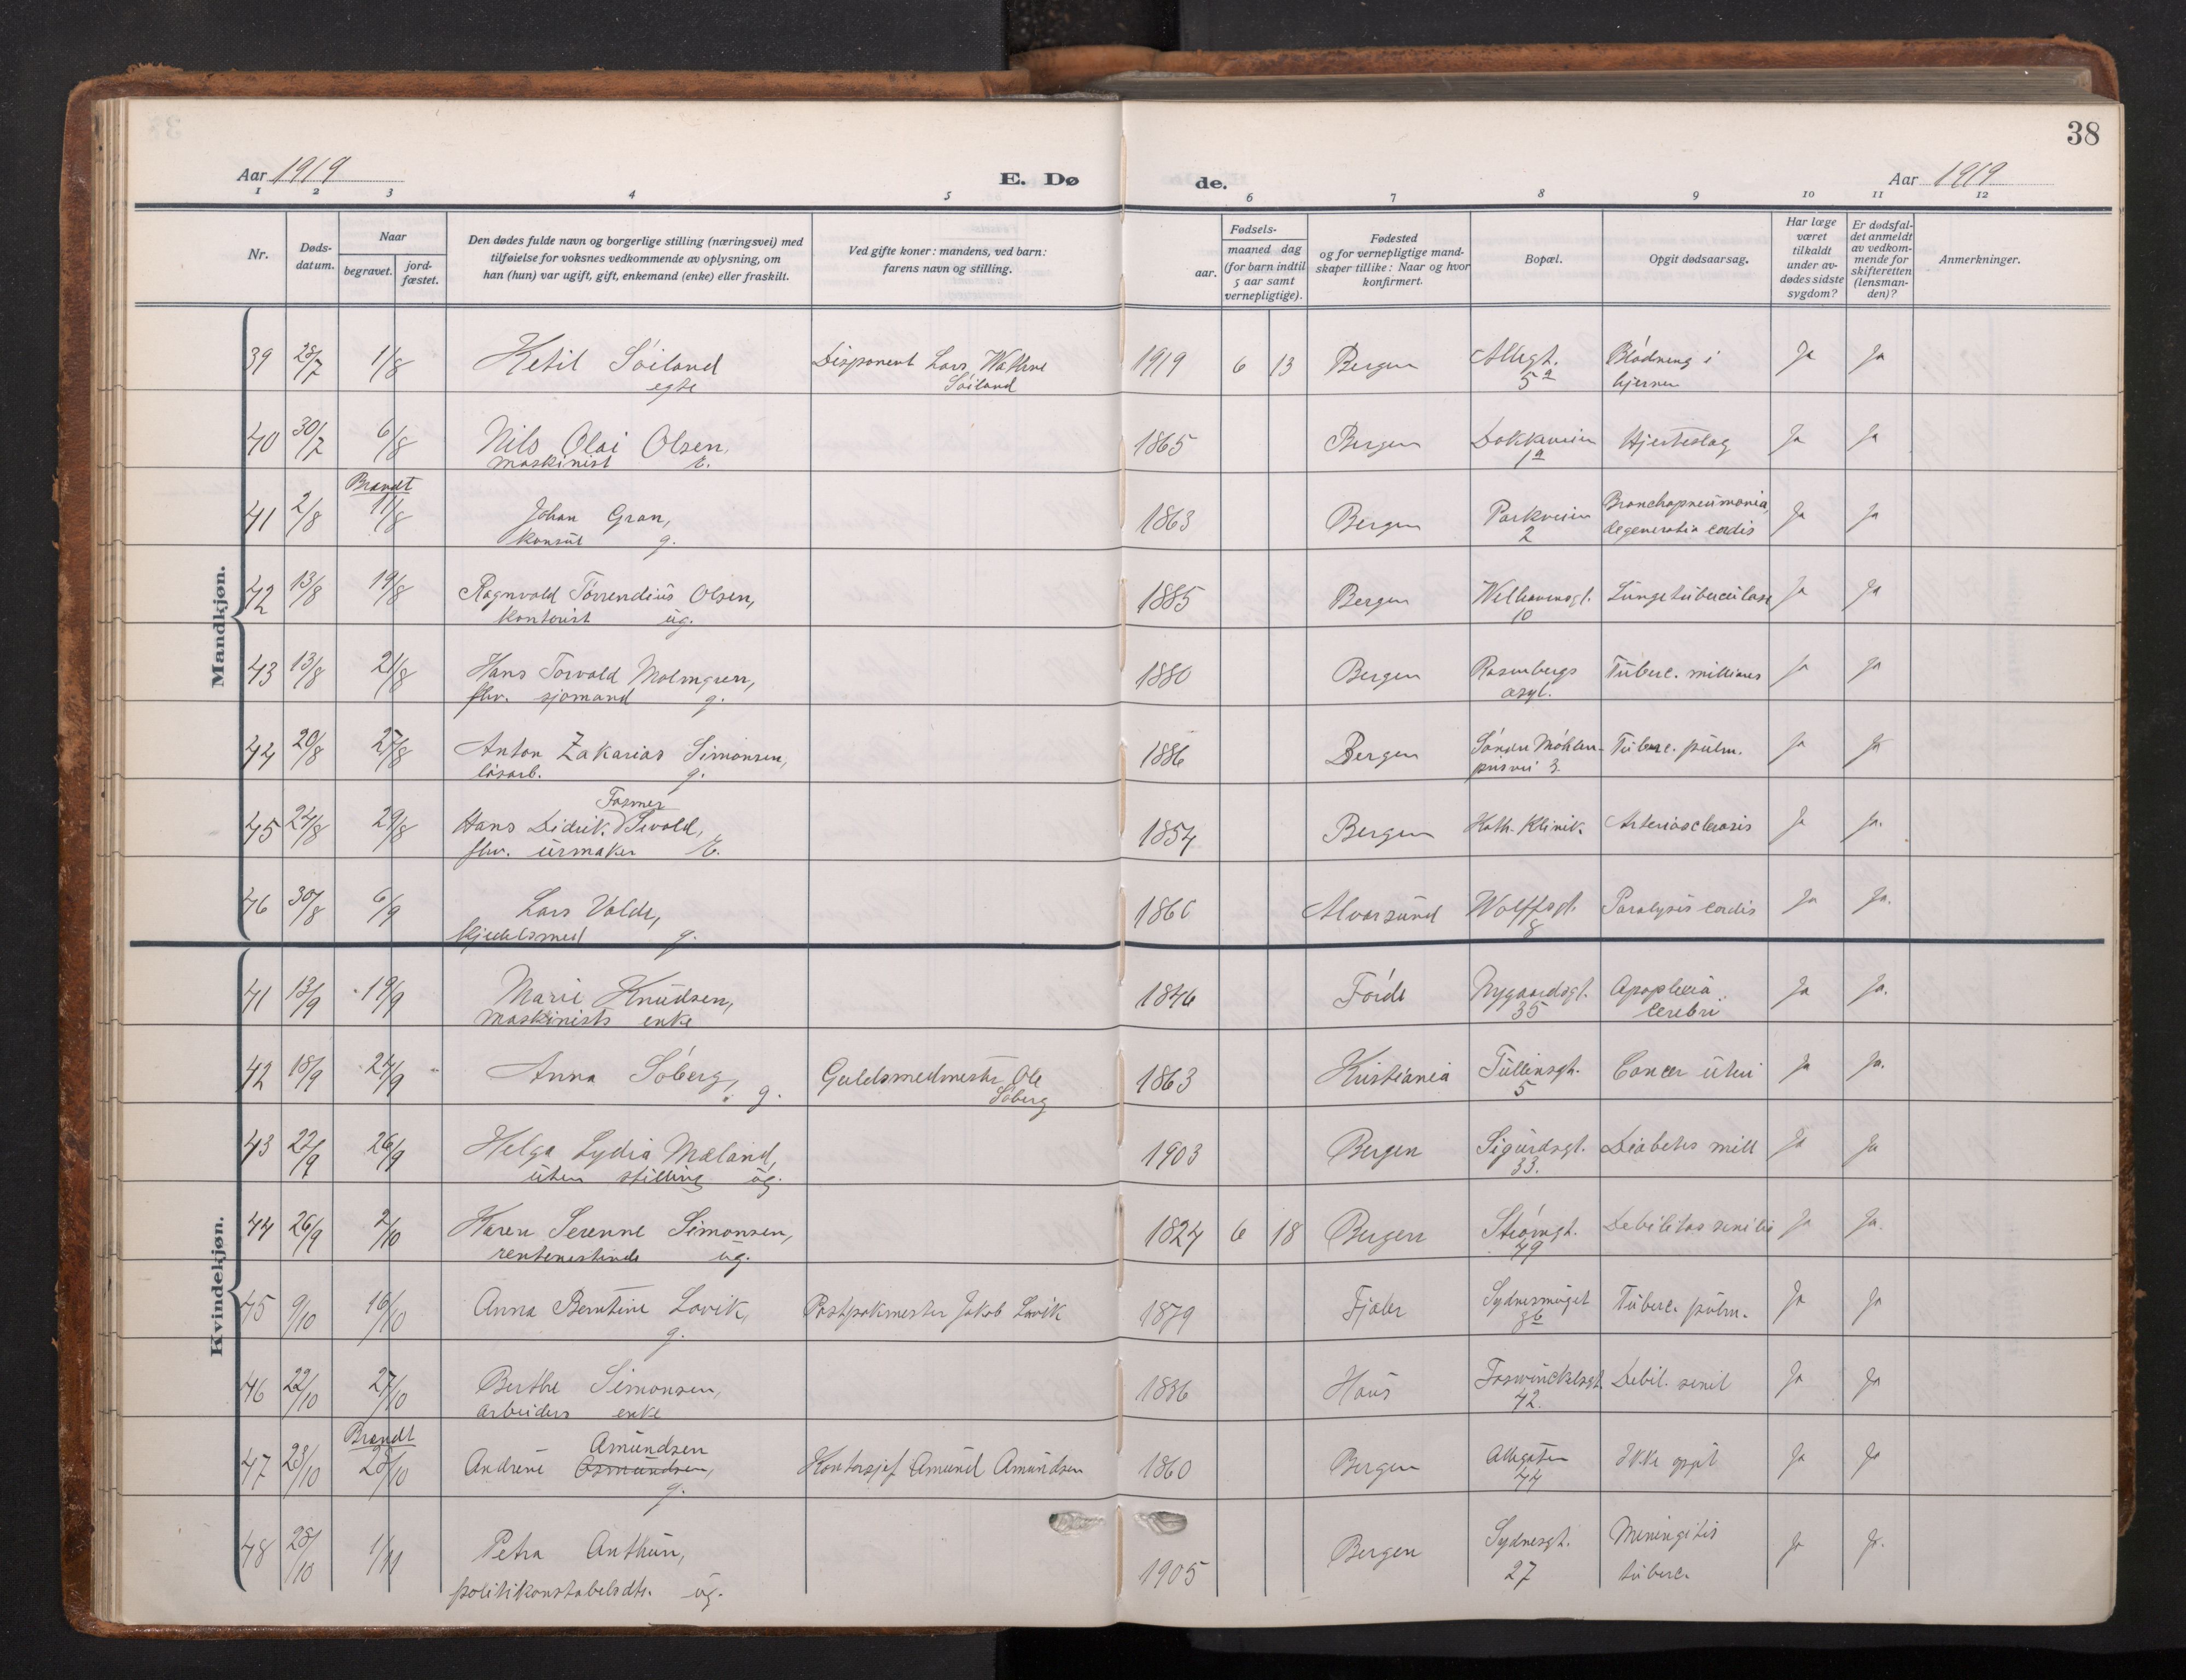 38
Aar 1919
E. Dø
de.
Aar 1919
1 2 3 4 5 6 7 8 9 10 11 12
Nr.
Døds-
datum.
Naar
begravet.
jord-
fæstet.
Den dødes fulde navn og borgerlige stilling (næringsvei) med
tilføielse for voksnes vedkommende av oplysning, om
han (hun) var ugift, gift, enkemand (enke) eller fraskilt.
Ved gifte koner: mandens, ved barn:
farens navn og stilling.
aar.
Fødsels-
maaned dag
(for barn indtil
5 aar samt
vernepligtige).
Fødested
og for vernepligtige mand-
skaper tillike: Naar og hvor
konfirmert.
Bopæl.
Opgit dødsaarsag.
Har læge
været
tilkaldt
under av-
dødes sidste
sygdom?
Er dødsfal-
det anmeldt
av vedkom-
mende for
skifteretten
(lensman-
den)?
Anmerkninger.
Mandkjøn.
39 28/7 1/8 Ketil Söiland Disponent Lars Wathne 1919 6 13 Bergen Allegt. Blödning i Ja Ja
egte Söiland 5a hjernen
40 30/7 6/8 Nils Olai Olsen, 1865 Bergen Dokkveien Hjerteslag Ja Ja
maskinist E. 1a
Brandt
41 2/8 11/8 Johan Gran, 1863 Bergen Parkveien Bronchopneumonia, Ja Ja
konsul g. 2 degeneratio cordis
42 13/8 19/8 Ragnvald Törrendius Olsen, 1885 Bergen Welhavensgt. Lungetuberculose Ja Ja
kontorist ug. 10
43 13/8 21/8 Hans Torvald Malmgren, 1880 Bergen Rosenbergs Tuberc. milliares Ja Ja
fhv. sjømand g. asyl.
44 20/8 27/8 Anton Zakarias Simonsen, 1886 Bergen Söndre Möhlen- Tuberc. pulm. Ja Ja
lösarb. g. prisvei 3.
Fasmer
45 24/8 29/8 Hans Didrik Sivold, 1854 Bergen Kath. Klinik. Arteriosclerosis Ja Ja.
fhv. urmaker E.
46 30/8 6/9 Lars Valde, Alvorsund Wolffsgt. Paralysis cordis Ja Ja.
kjedelsmed g. 8
Kvindekjøn.
41 13/9 19/9 Marie Knudsen, 1846 Förde Nygaardsgt. Apoplexia Ja Ja.
maskinists enke 35 cerebri
42 18/9 24/9 Anna Söberg, g. Guldsmedmester Ole 1863 Kristiania Tullinsgt. Cancer uteri Ja Ja.
Söberg 5
43 22/9 26/9 Helga Lydia Mæland, 1903 Bergen Sigurdsgt. Diabetes mell Ja Ja
uten stilling ug. 33.
44 26/9 2/10 Karen Serenne Simonsen, 1824 6 18 Bergen Strömgt. Debilitas senilis Ja Ja.
rentenistinde ug. 49
45 9/10 16/10 Anna Berntine Lavik, Postpakmester Jakob Lavik 1879 Fjaler Sydnessmuget Tuberc. pulm. Ja Ja
g. 8b
46 22/10 27/10 Berthe Simonsen, 1836 Haus Foswinckelsgt Debil. senil Ja Ja
arbeiders enke 42.
Brandt
Amundsen
47 23/10 28/10 Andrine Osmundsen, Kontorsjef Amund Amundsen 1860 Bergen Allegaten Ikke opgit Ja Ja
g. 44
48 28/10 1/11 Petra Anthun, 1905 Bergen Sydnesgt. Meningitis Ja Ja.
politikonstabelsdtr. ug. 27 tuberc.